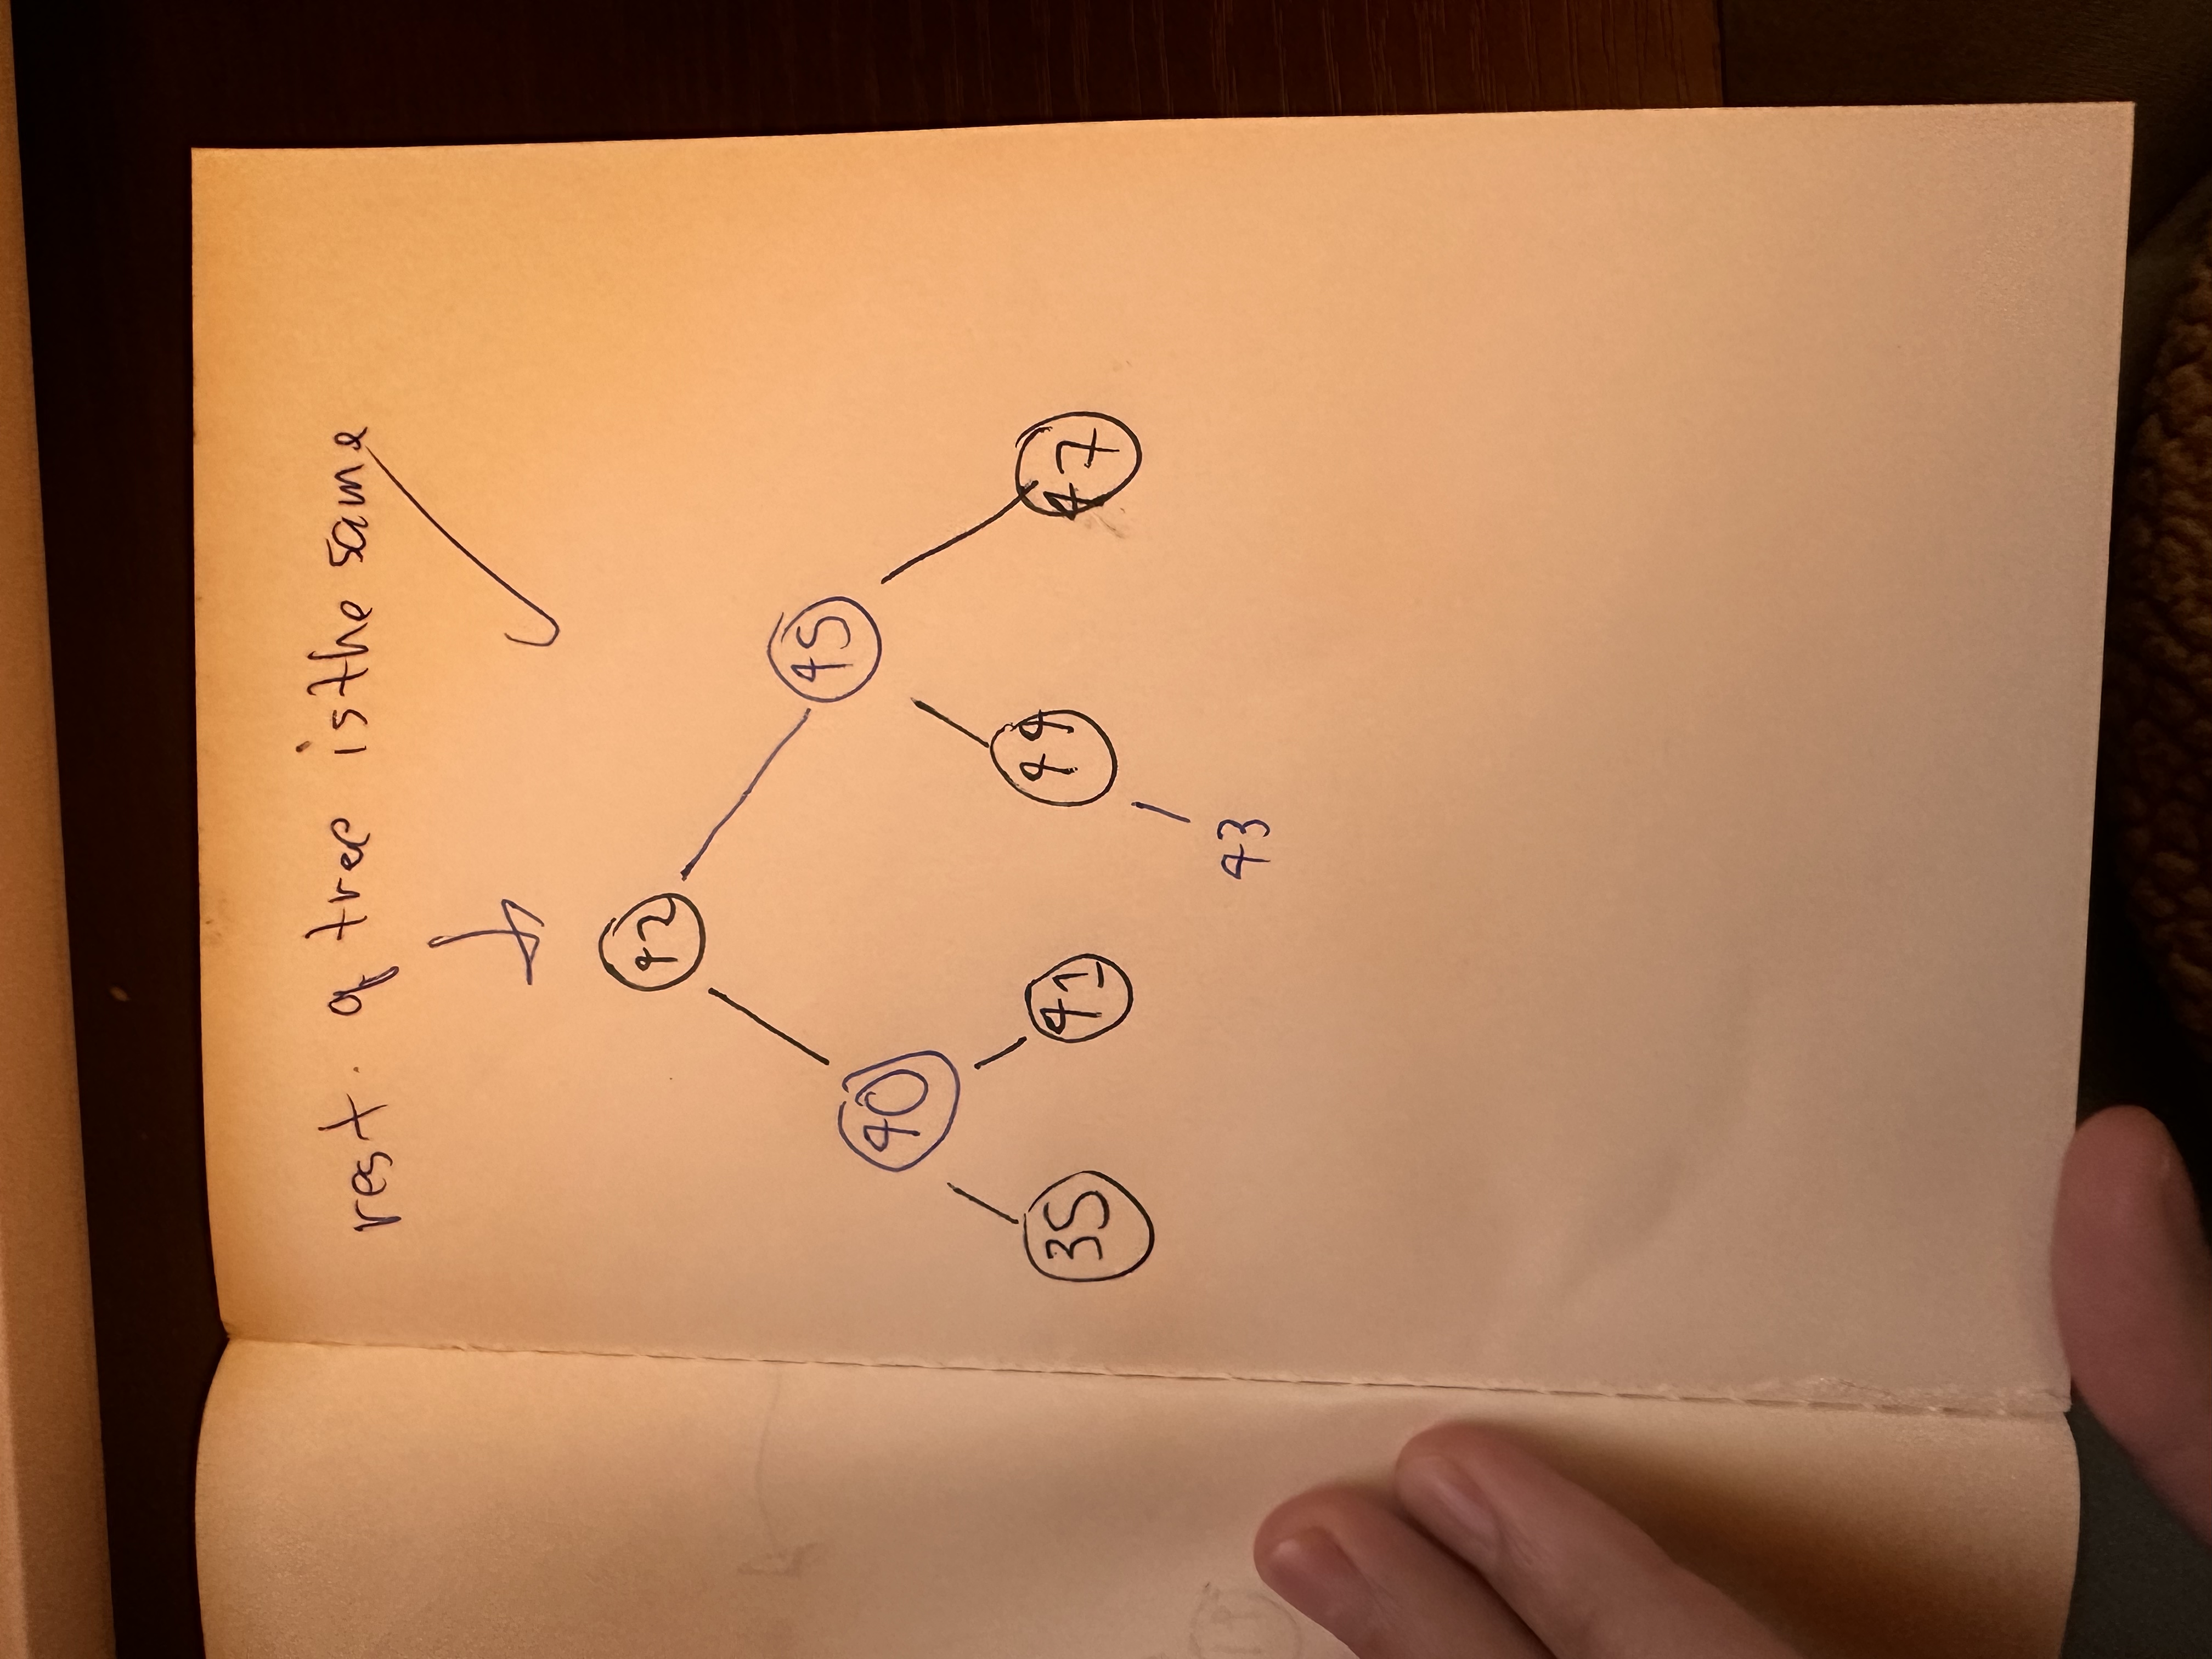 rest. of tree is the same
42
45
40
35 41 44 47
43